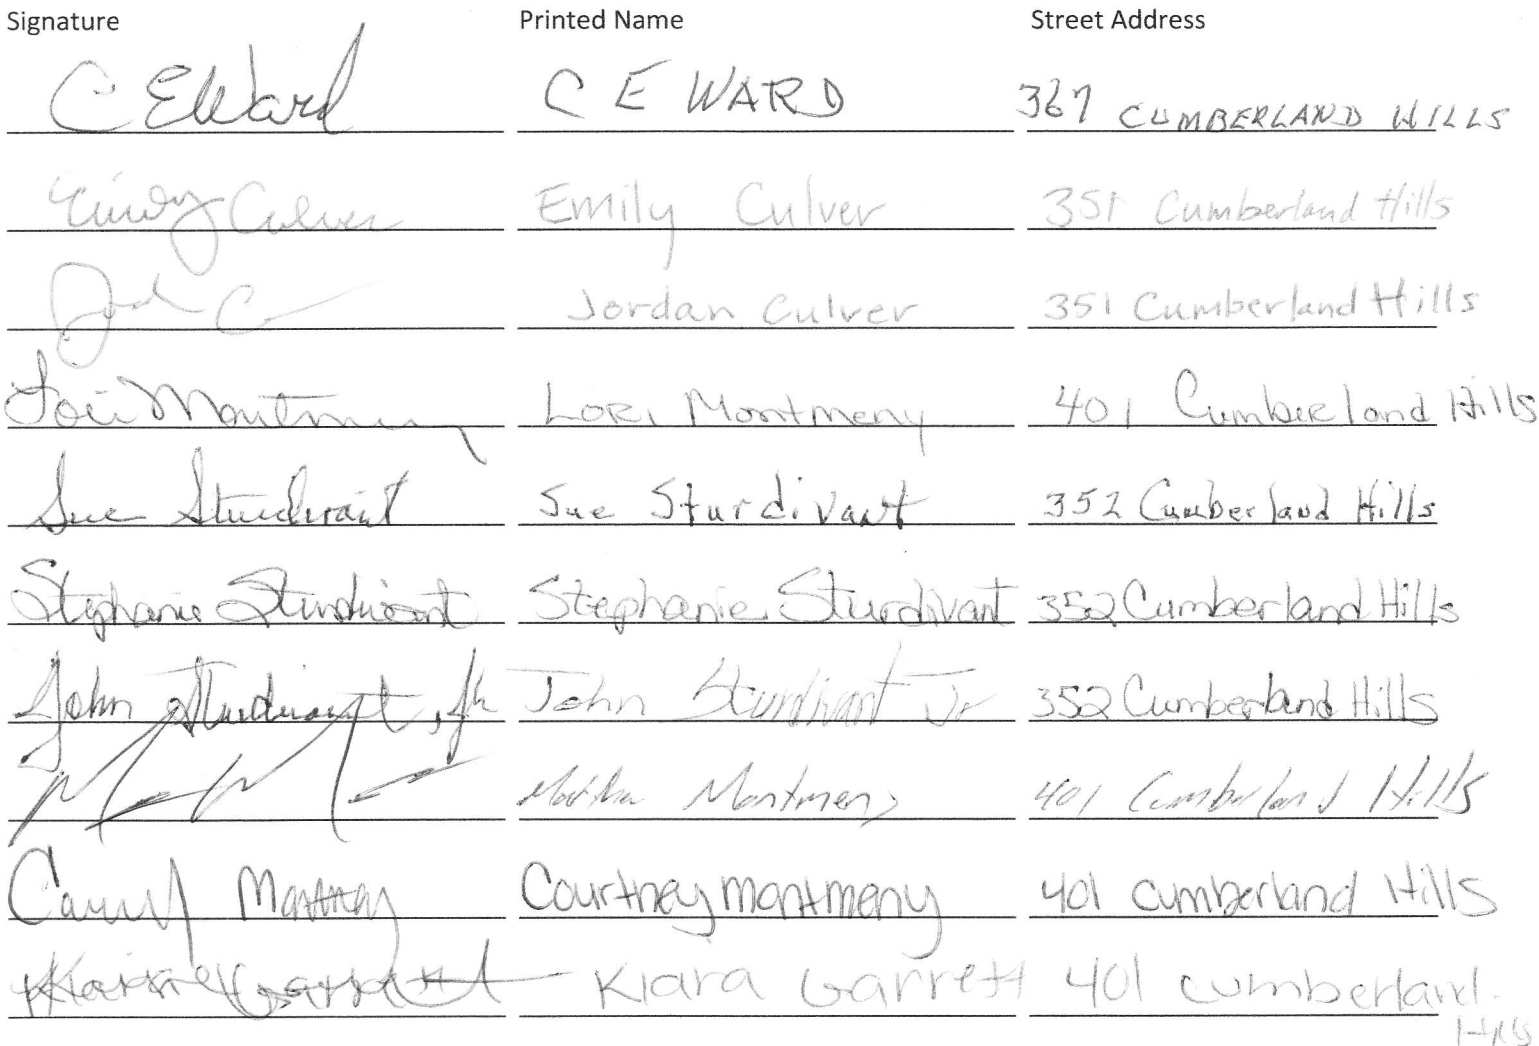 Signature Printed Name Street Address
C E Ward C E WARD 367 CUMBERLAND HILLS
Emily Culver Emily Culver 351 Cumberland Hills
Jordan Culver 351 Cumberland Hills
Lori Montmeny LORi Montmeny 401 Cumberland Hills
Sue Sturdivant Sue Sturdivant 352 Cumberland Hills
Stephanie Sturdivant Stephanie Sturdivant 352 Cumberland Hills
John Sturdivant, Jr John Sturdivant Jr 352 Cumberland Hills
Montmeny 401 Cumberland Hills
Courtney montmeny 401 cumberland Hills
Kiara Garrett Kiara Garrett 401 cumberland
Hills